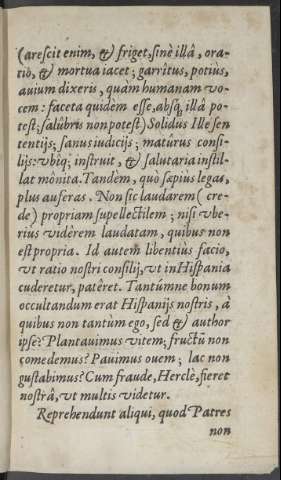 (arescit enim, & friget, sinè illâ, ora-
tiò, & mortua iacet; garrîtus, potiùs,
avium dixeris, quàm humanam vo-
cem: faceta quidèm esse, absq; illâ po-
test; salûbris non potest) Solidùs Ille sen
tentijs; sanus iudicijs; matûrus consi-
lijs: vbiq; instruit, & salutaria instil-
lat mònita. Tandèm, quò sæpiùs legas,
plus auferas. Non sic laudarem (cre-
de) propriam supellectilem; nisi vbe-
riùs vidèrem laudatam, quibus non
est propria. Id autem libentiùs facio,
vt ratio nostri consilij, vt in Hispania
cuderetur, patêret. Tantúmne bonum
occultandum erat Hispanijs nostris, à
quibus non tantùm ego, sed & author
ipse? Plantauimus vitem; fructũ non
comedemus? Pauimus ouem; lac non
gustabimus? Cum fraude, Herclè, fieret
nostrâ, vt multis videtur.
Reprehendunt aliqui, quod Patres
non